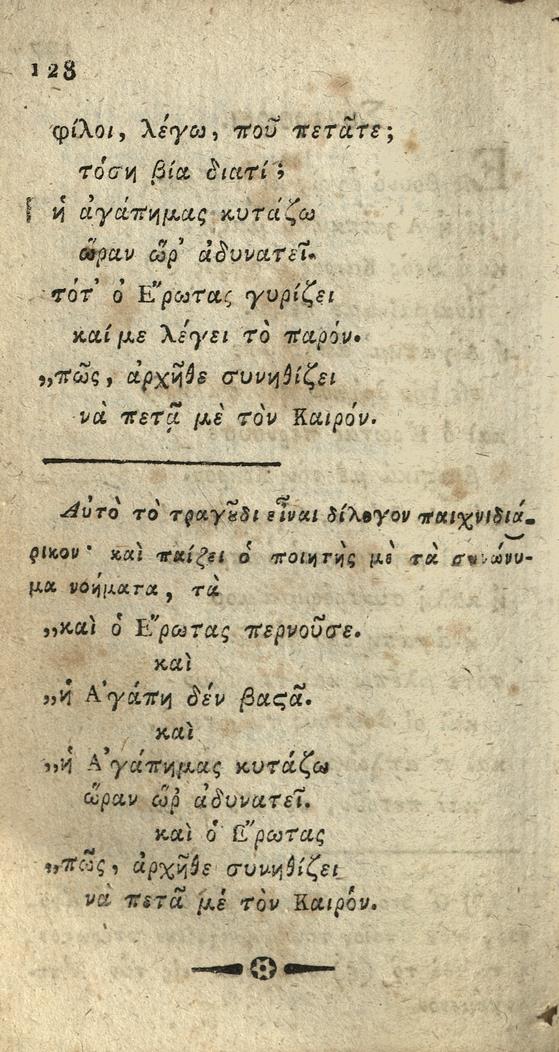 128
φίλοι, λέγω, ποῦ πετᾶτε;
τόση βία διατί;
ἡ ἀγάπημας κυτάζω
ὥραν ὥρ' ἀδυνατεῖ.
τότ' ὁ Ἔρωτας γυρίζει
καί με λέγει τὸ παρόν.
„πῶς, ἀρχῆθε συνηθίζει
νὰ πετᾷ μὲ τὸν Καιρόν.
Αὐτὸ τὸ τραγȣ͂δι εἶναι δίλογον παιχνιδιά-
ρικον· καὶ παίζει ὁ ποιητὴς μὲ τὰ συνώνυ-
μα νοήματα, τὰ
„καὶ ὁ Ἔρωτας περνοῦσε.
καὶ
„ἡ Ἀγάπη δέν βαϛᾶ.
καὶ
„ἡ Ἀγάπημας κυτάζω
ὥραν ὥρ' ἀδυνατεῖ.
καὶ ὁ Ἔρωτας
„πῶς, ἀρχῆθε συνηθίζει
νὰ πετᾶ μέ τὸν Καιρόν.